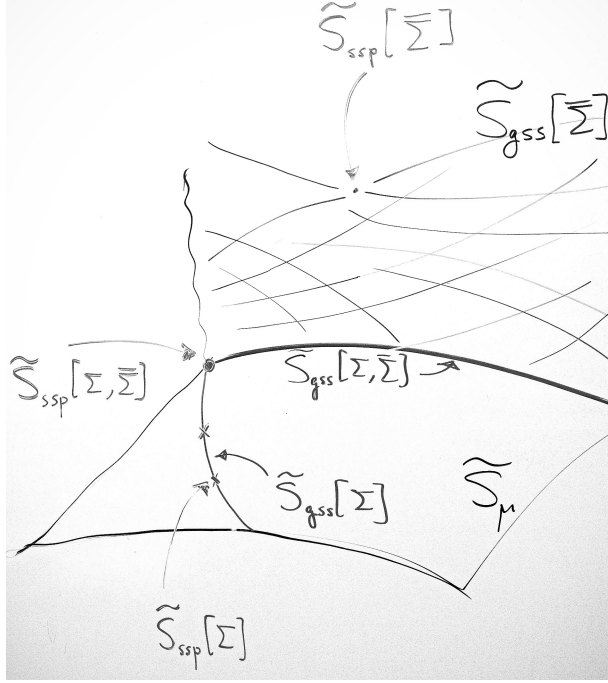 S̃ssp[Σ̅]
S̃gss[Σ̅]
S̃ssp[Σ,Σ̅]
S̃gss[Σ,Σ̅]
S̃gss[Σ]
S̃μ
S̃ssp[Σ]